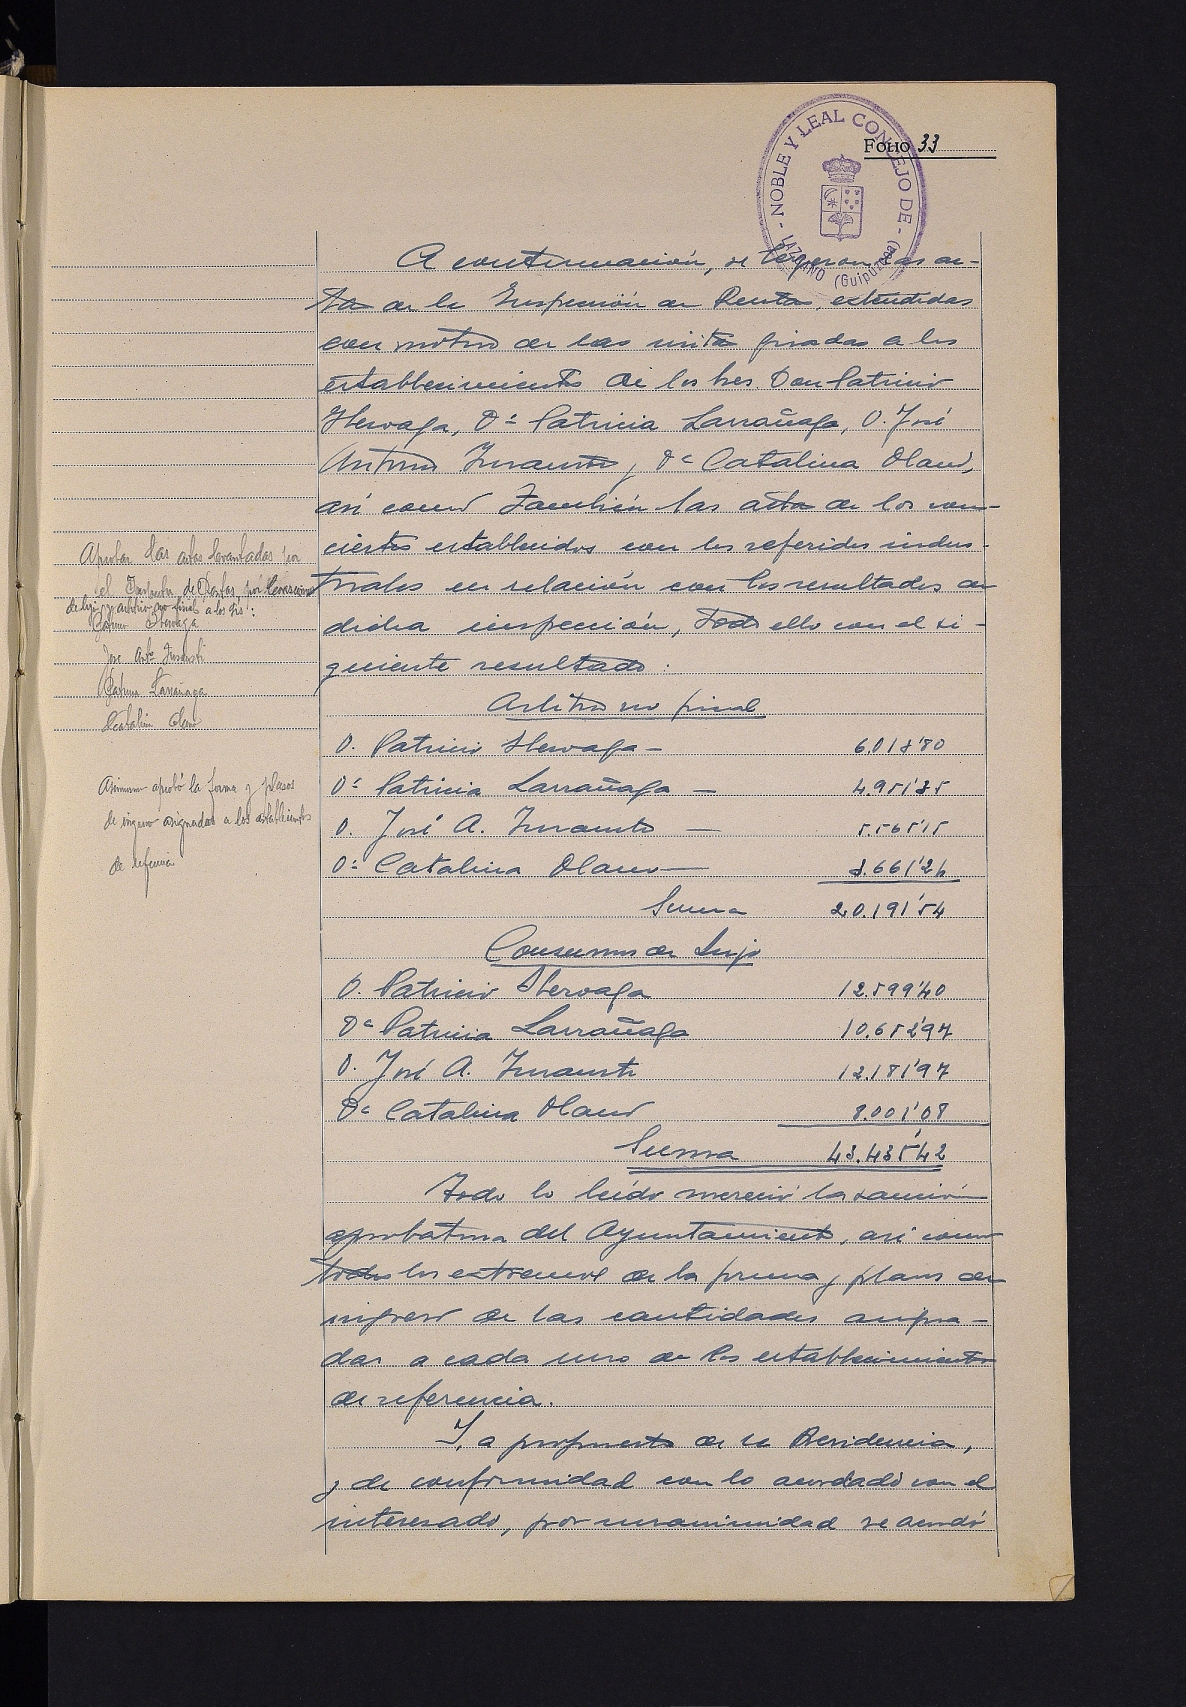 FOLIO 33
- NOBLE Y LEAL CONCEJO DE -
LAZCANO (Guipúzcoa)
A continuación, se leyeron las ac-
tas de la Inspección de Rentas, extendidas
con motivo de las visitas giradas a los
establecimientos de los Sres. Don Patricio
D.ª Patricia Larrañaga, D. José
Antonio y D.ª Catalina Olano,
así como también las actas de los con-
ciertos establecidos con los referidos indus-
triales en relación con los resultados de
dicha inspección, todo ello con el si-
guiente resultado:
Arbitrio no fiscal
D. Patricio
D.ª Patricia Larrañaga —
D. José A. — 5.565'15
D.ª Catalina Olano —
Suma 20.191'54
Consumos de Lujo
D. Patricio 12.599'40
D.ª Patricia Larrañaga 10.652'97
D. José A. 12.181'97
D.ª Catalina Olano 8.001'08
Suma 43.435'42
Todo lo leído mereció la sanción
aprobatoria del Ayuntamiento, así como
todos los extremos de la forma y plazos de
ingreso de las cantidades asigna-
das a cada uno de los establecimientos
de referencia.
Y, a propuesta de la Presidencia,
y de conformidad con lo acordado con el
interesado, por unanimidad se acordó
Aprobar las actas levantadas por
el Inspector de Rentas, por
de lujo y arbitrio no fiscal a los Srs:
José Ant.º
Larrañaga
Catalina Olano
Asimismo aprobó la forma y plazos
de ingreso asignados a los establecimientos
de referencia